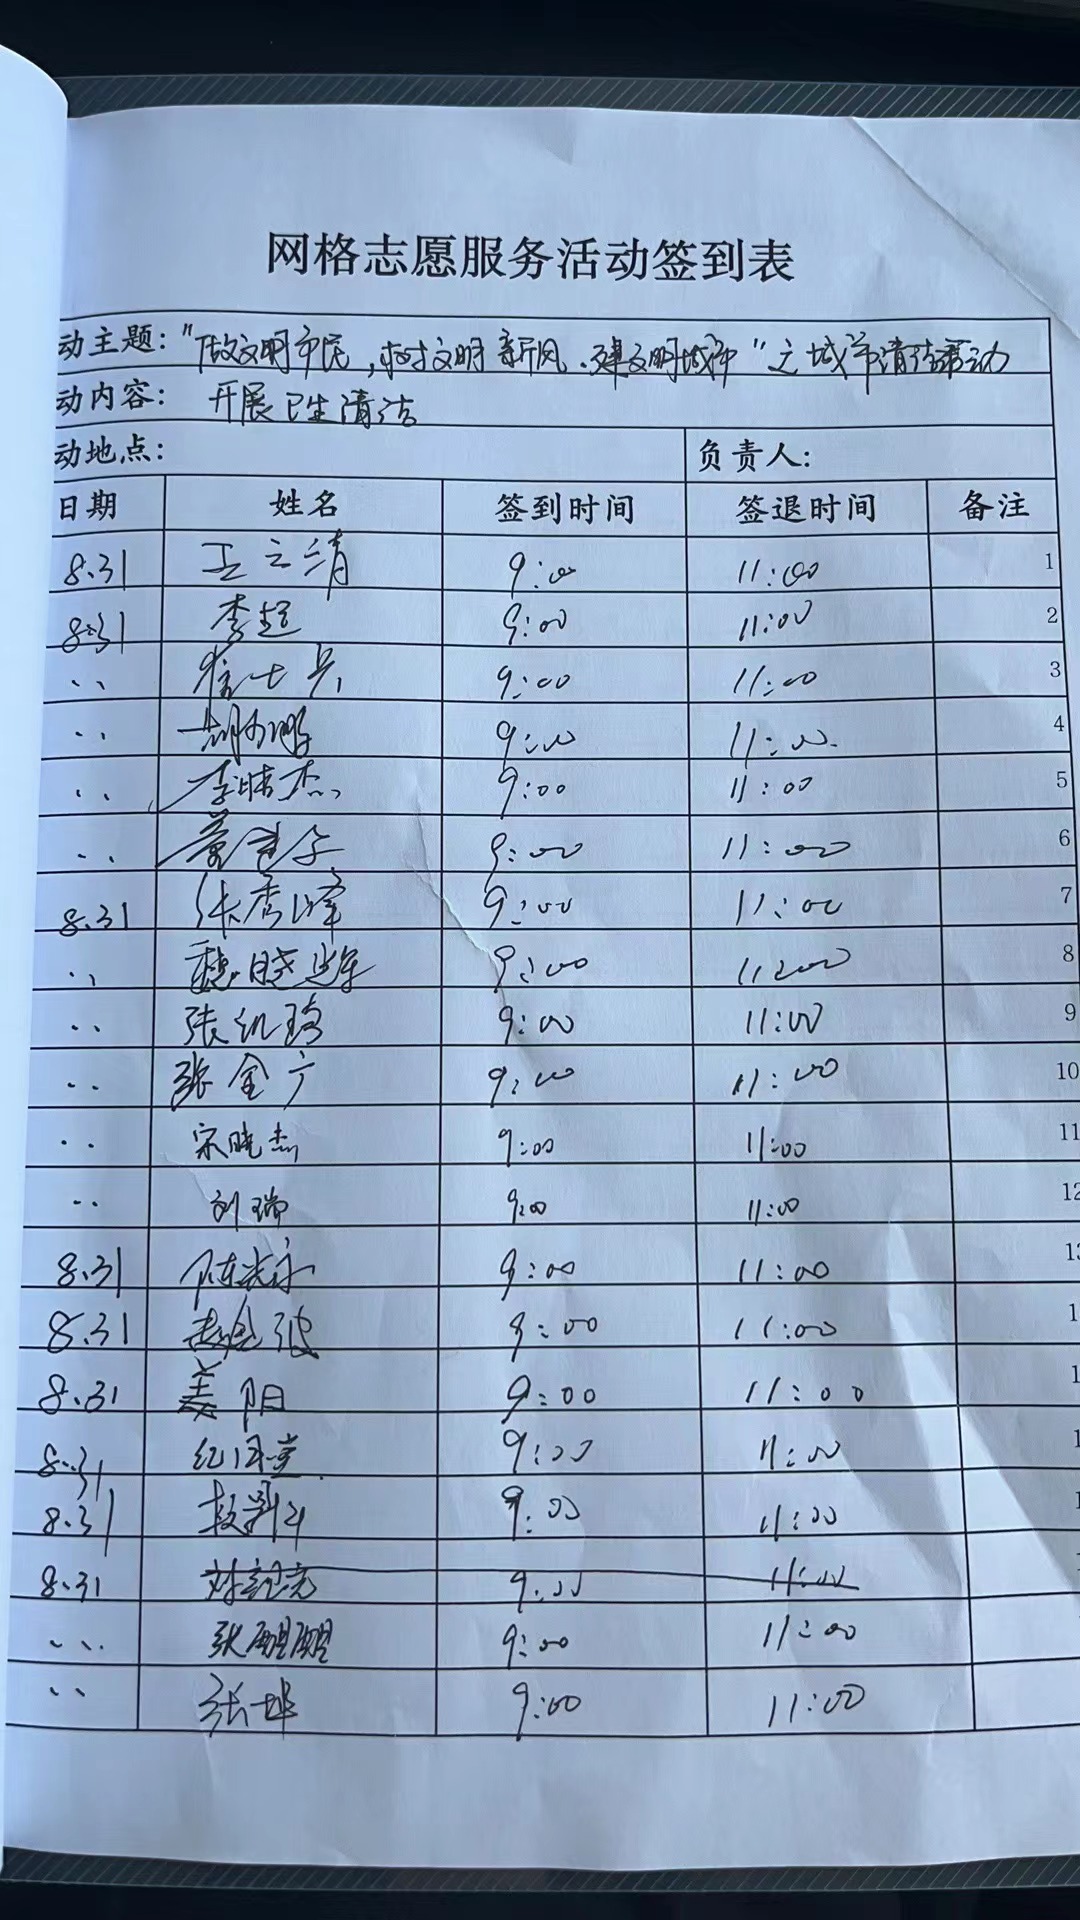 网格志愿服务活动签到表
动主题："做文明市民，树文明新风、建文明城市"之城市清洁活动
动内容： 开展卫生清洁
动地点： 负责人:
日期 姓名 签到时间 签退时间 备注
8.31 王之清 9:00 11:00 1
8.31 李超 9:00 11:00 2
.. 士兵 9:00 11:00 3
.. 胡 9:00 11:00 4
.. 李晓杰 9:00 11:00 5
.. 9:00 11:00 6
8.31 张秀峰 9:00 11:00 7
.. 魏晓 9:00 11:00 8
.. 张 9:00 11:00 9
.. 张金广 9:00 11:00 10
.. 宋晓杰 9:00 11:00 11
.. 刘瑞 9:00 11:00 12
8.31 陈光永 9:00 11:00
8.31 9:00 11:00
8.31 姜阳 9:00 11:00
8.31 9:00 11:00
8.31 9:00 11:00
8.31 9:00 11:00
... 张 9:00 11:00
.. 张坤 9:00 11:00